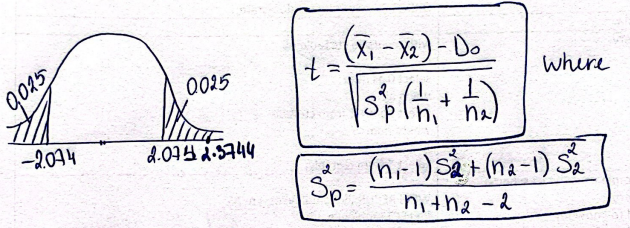 0.025
0.025
-2.074
2.074 2.3744
t = (x̄₁ - x̄₂) - D₀ / √(S²p (1/n₁ + 1/n₂)) where
S²p = (n₁-1) S²₂ + (n₂-1) S²₂ / n₁+n₂ - 2